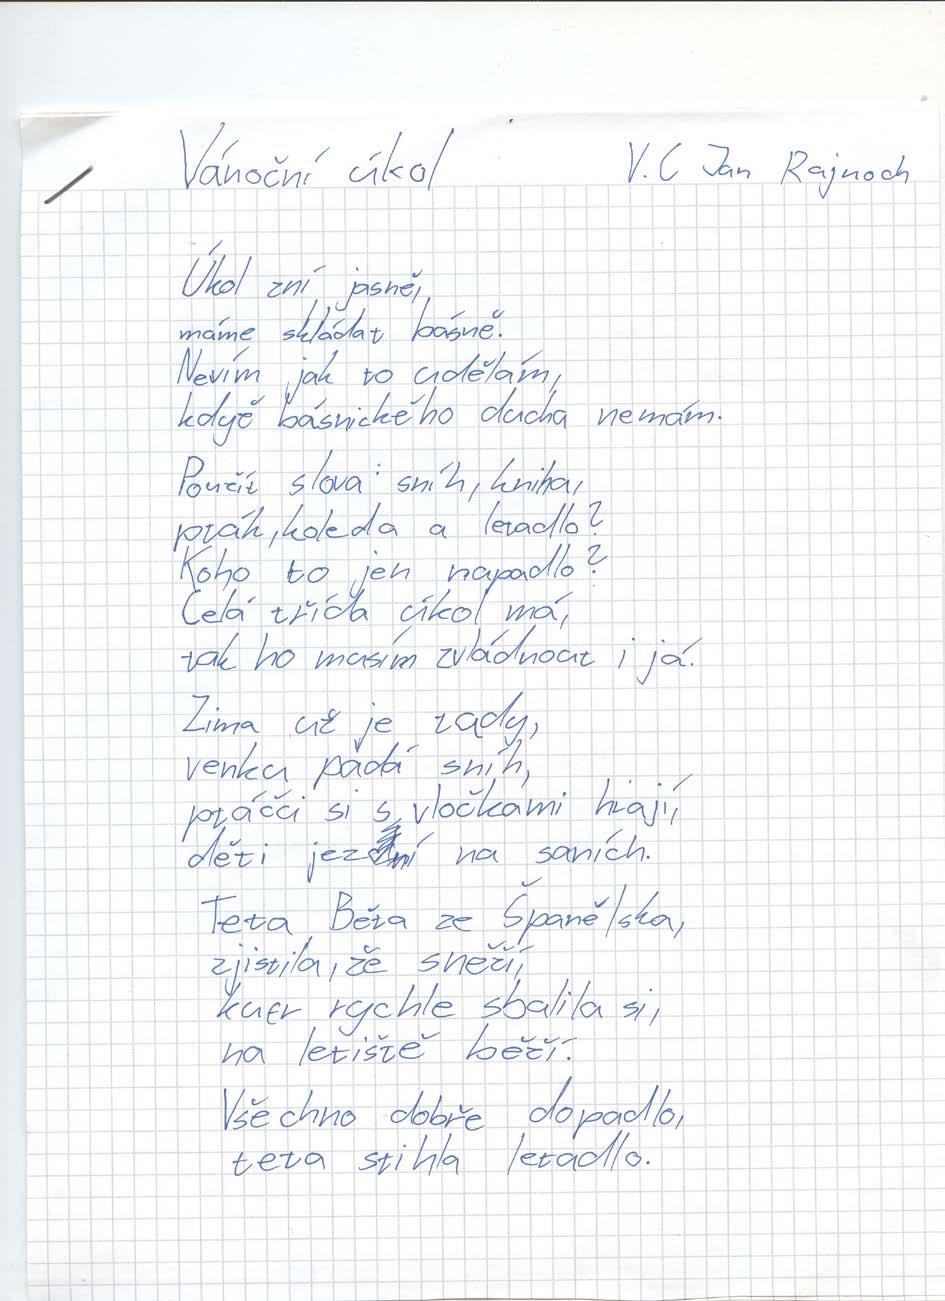 Vánoční úkol V.C Jan Rajnoch
Úkol zní jasně,
máme skládat básně.
Nevím jak to udělám,
když básnického ducha nemám.
Použít slova: sníh, kniha,
pták, koleda a letadlo?
Koho to jen napadlo?
Celá třída úkol má,
tak ho musím zvládnout i já.
Zima už je tady,
venku padá sníh,
ptáčci si s vločkami hrají,
děti jezdí na saních.
Teta Běta ze Španělska,
zjistila, že sněží,
kufr rychle sbalila si,
na letiště běží.
Všechno dobře dopadlo,
teta stihla letadlo.